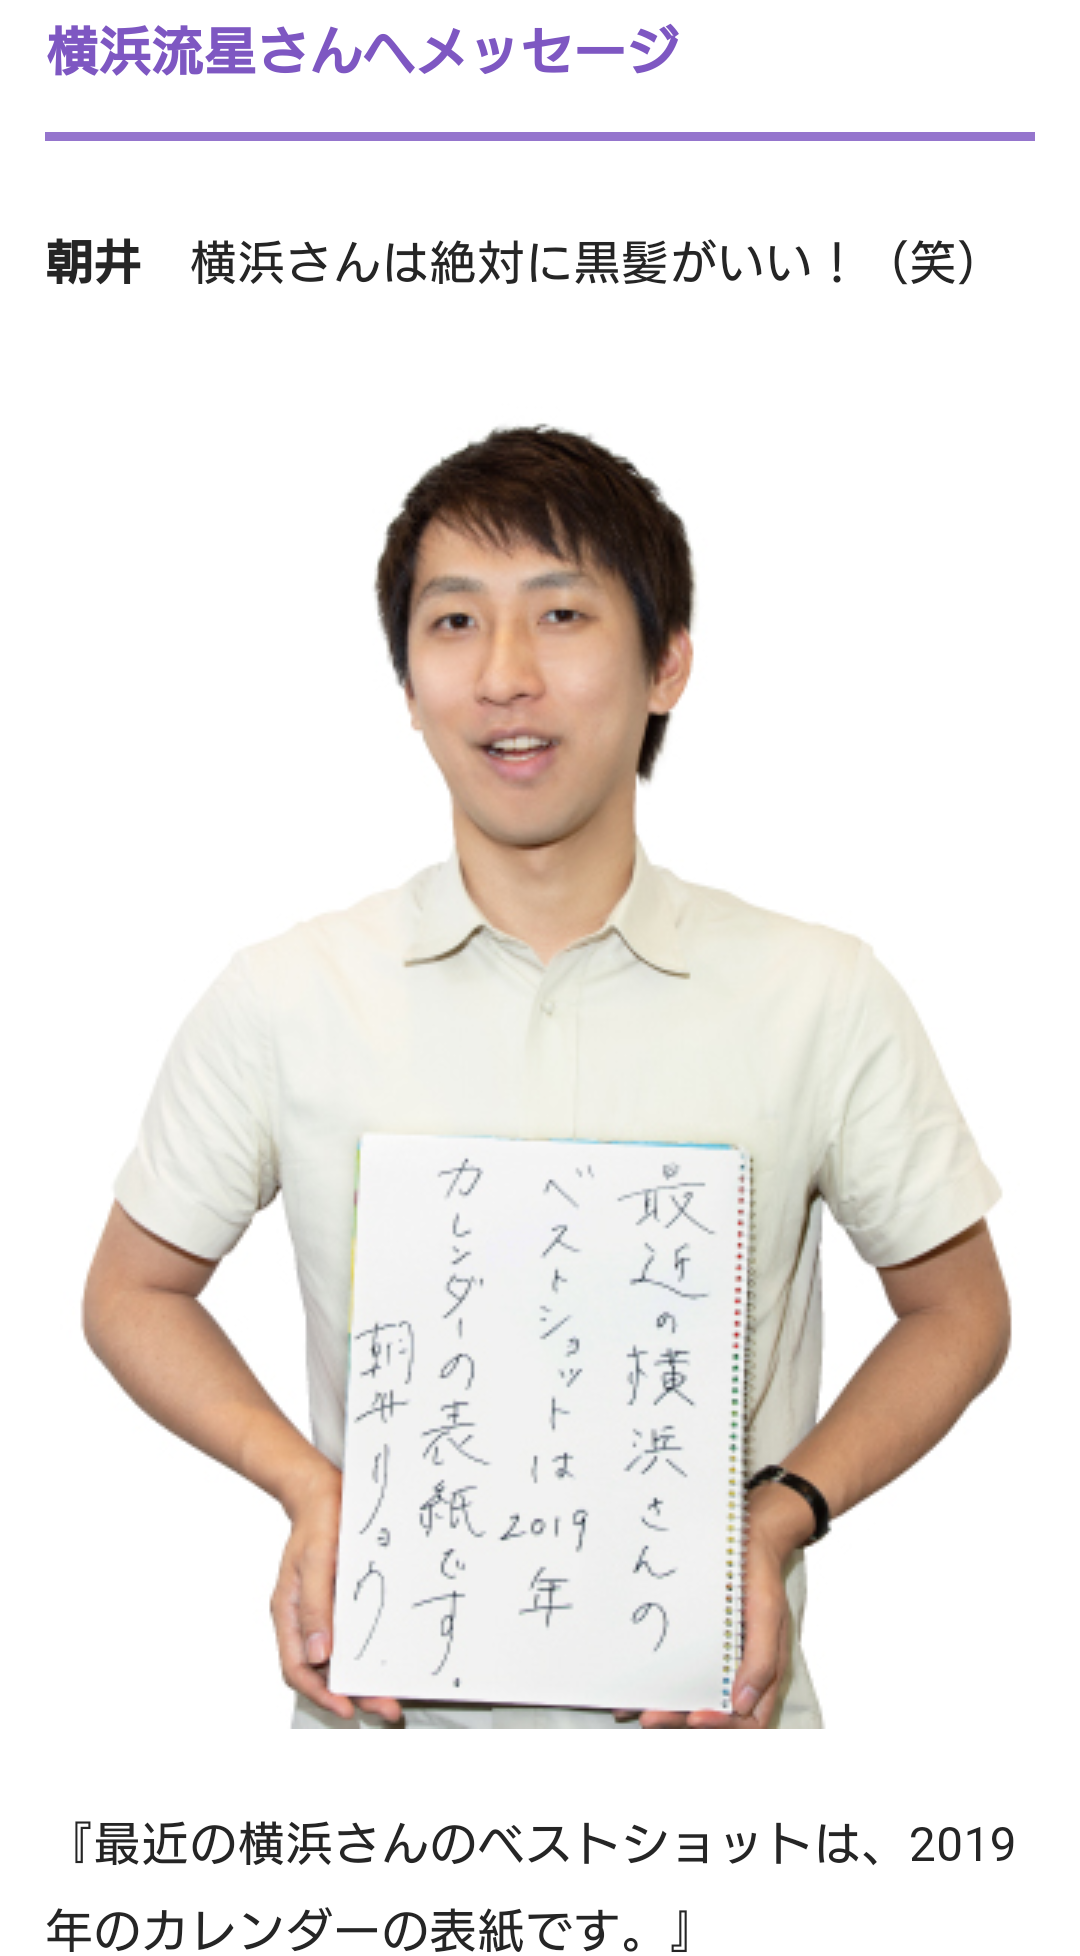 横浜流星さんへメッセージ
朝井　横浜さんは絶対に黒髪がいい！（笑）
最近の横浜さんの
ベストショットは2019年
カレンダーの表紙です。
朝井リョウ
『最近の横浜さんのベストショットは、2019
年のカレンダーの表紙です。』